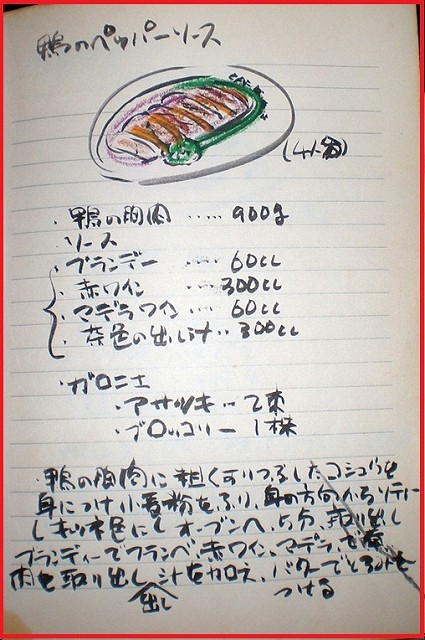 鴨のペッパーソース
(4人分)
・鴨の胸肉 ..... 900g
・ソース
・ブランデー ..... 60cc
・赤ワイン ... 300cc
・マデラワイン ... 60cc
・茶色の出し汁 .. 300cc
・ガロニエ
・アサツキ .. 2束
・ブロッコリー 1株
・鴨の胸肉に粗くすりつぶしたコショウを
身につけ小麦粉をふり、身の方からソテー
し キツネ色にし オーブンへ、5分、取り出し
ブランディーでフランベ、赤ワイン、マデラ
肉を取り出し 出し汁を加え、バターでとろみを
つける